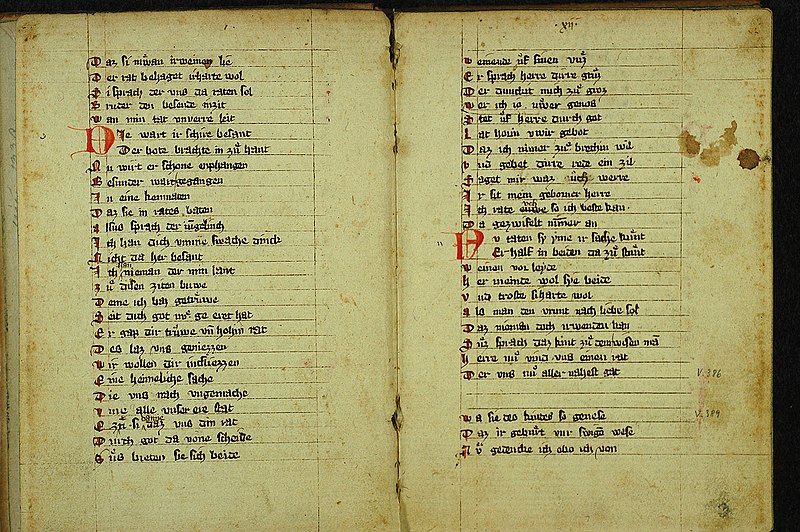 Daz si niwan irweinen lie
Der rat behaget ir harte wol
Si sprach der vns da raten sol
Bruder den besende inzit
Wan min tat vnverre leit
Die wart ir schire besant
Der bote brachte in zu hant
Nu wirt er schone enphangen
Besunder wart gegangen
In eine kemnaten
Daz sie in rates baten
Alsus sprach der iungelinch
Ich han dich vmme swache dinck
Nicht da her besant
Ich nieman der min lant
Zu disen ziten buwe
Deme ich baz getruwe
Seit dich got ge eret hat
Er gap dir truwe vn hohin rat
Des laz vns geniezzen
Wir wollen dir insliezzen
Eine heimeliche sache
Die vns nach vngemache
Vmme alle vnser ere stat
vns din rat
Durch got da vone scheide
Sus bieten sie sich beide
XII
Weinende vf sinen
Er sprach herre dirre
Der dunchet mich zu groz
Wer ich io uwer genoz
Stet uf herre durch got
Lat horin vwir gebot
Daz ich nimer zu brechin wil
Vnd gebet dirre rede ein zil
Saget mir waz uch werre
Ir sit mein geborner herre
Ich rate so ich beste kan
Da gezwifelt nimmer an
Nu taten sy yme ir sache kunt
Er half in beiden da zu stunt
Weinen vor leyde
Her meinde wol sye beide
Vnd troste si harte wol
Als man den vrunt nach liebe sol
Daz nieman doch irwenden kan
sprach daz kint zu dem wisen man
Herre nu vind vns einen rat
Der vns nu aller nahest gat
V. 386
Wa sie des kindes so genese
V. 389
Daz ir geburt vur wese
Nv gedencke ich obo ich von